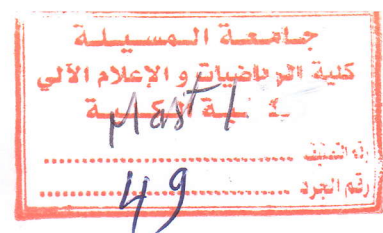 جامعة المسيلة
كلية الرياضيات و الإعلام الآلي
Mast 1
رقم الجرد
49